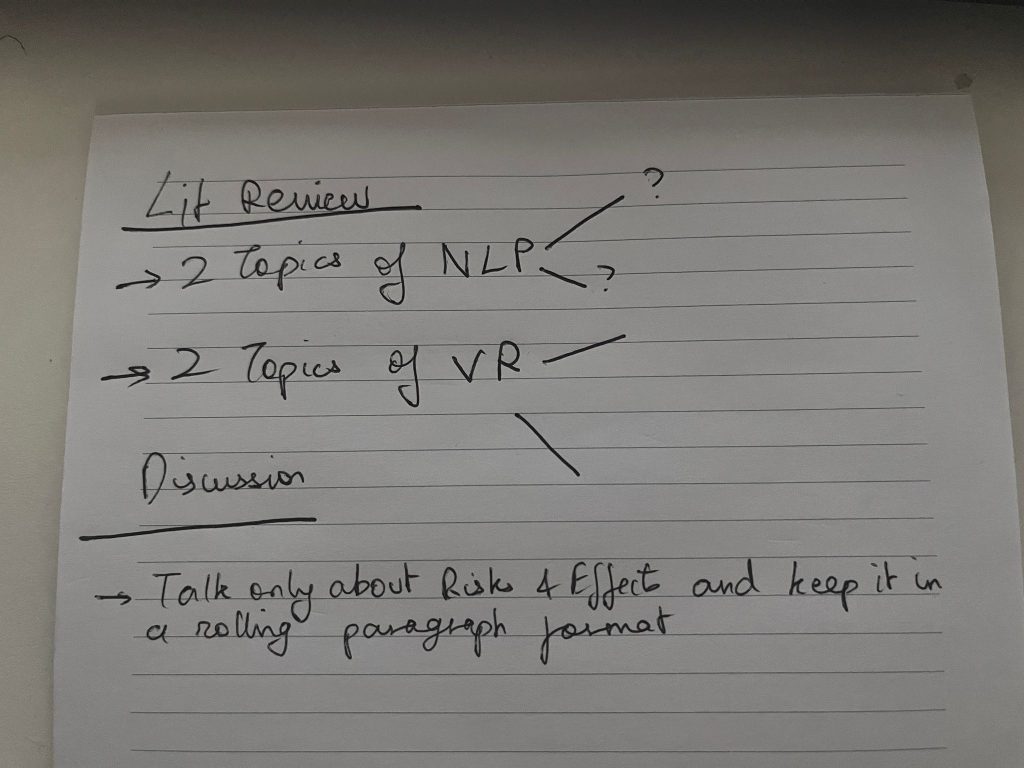 Lit Review
?
→ 2 Topics of NLP
?
→ 2 Topics of VR
Discussion
→ Talk only about Risk & Effect and keep it in
a rolling paragraph format